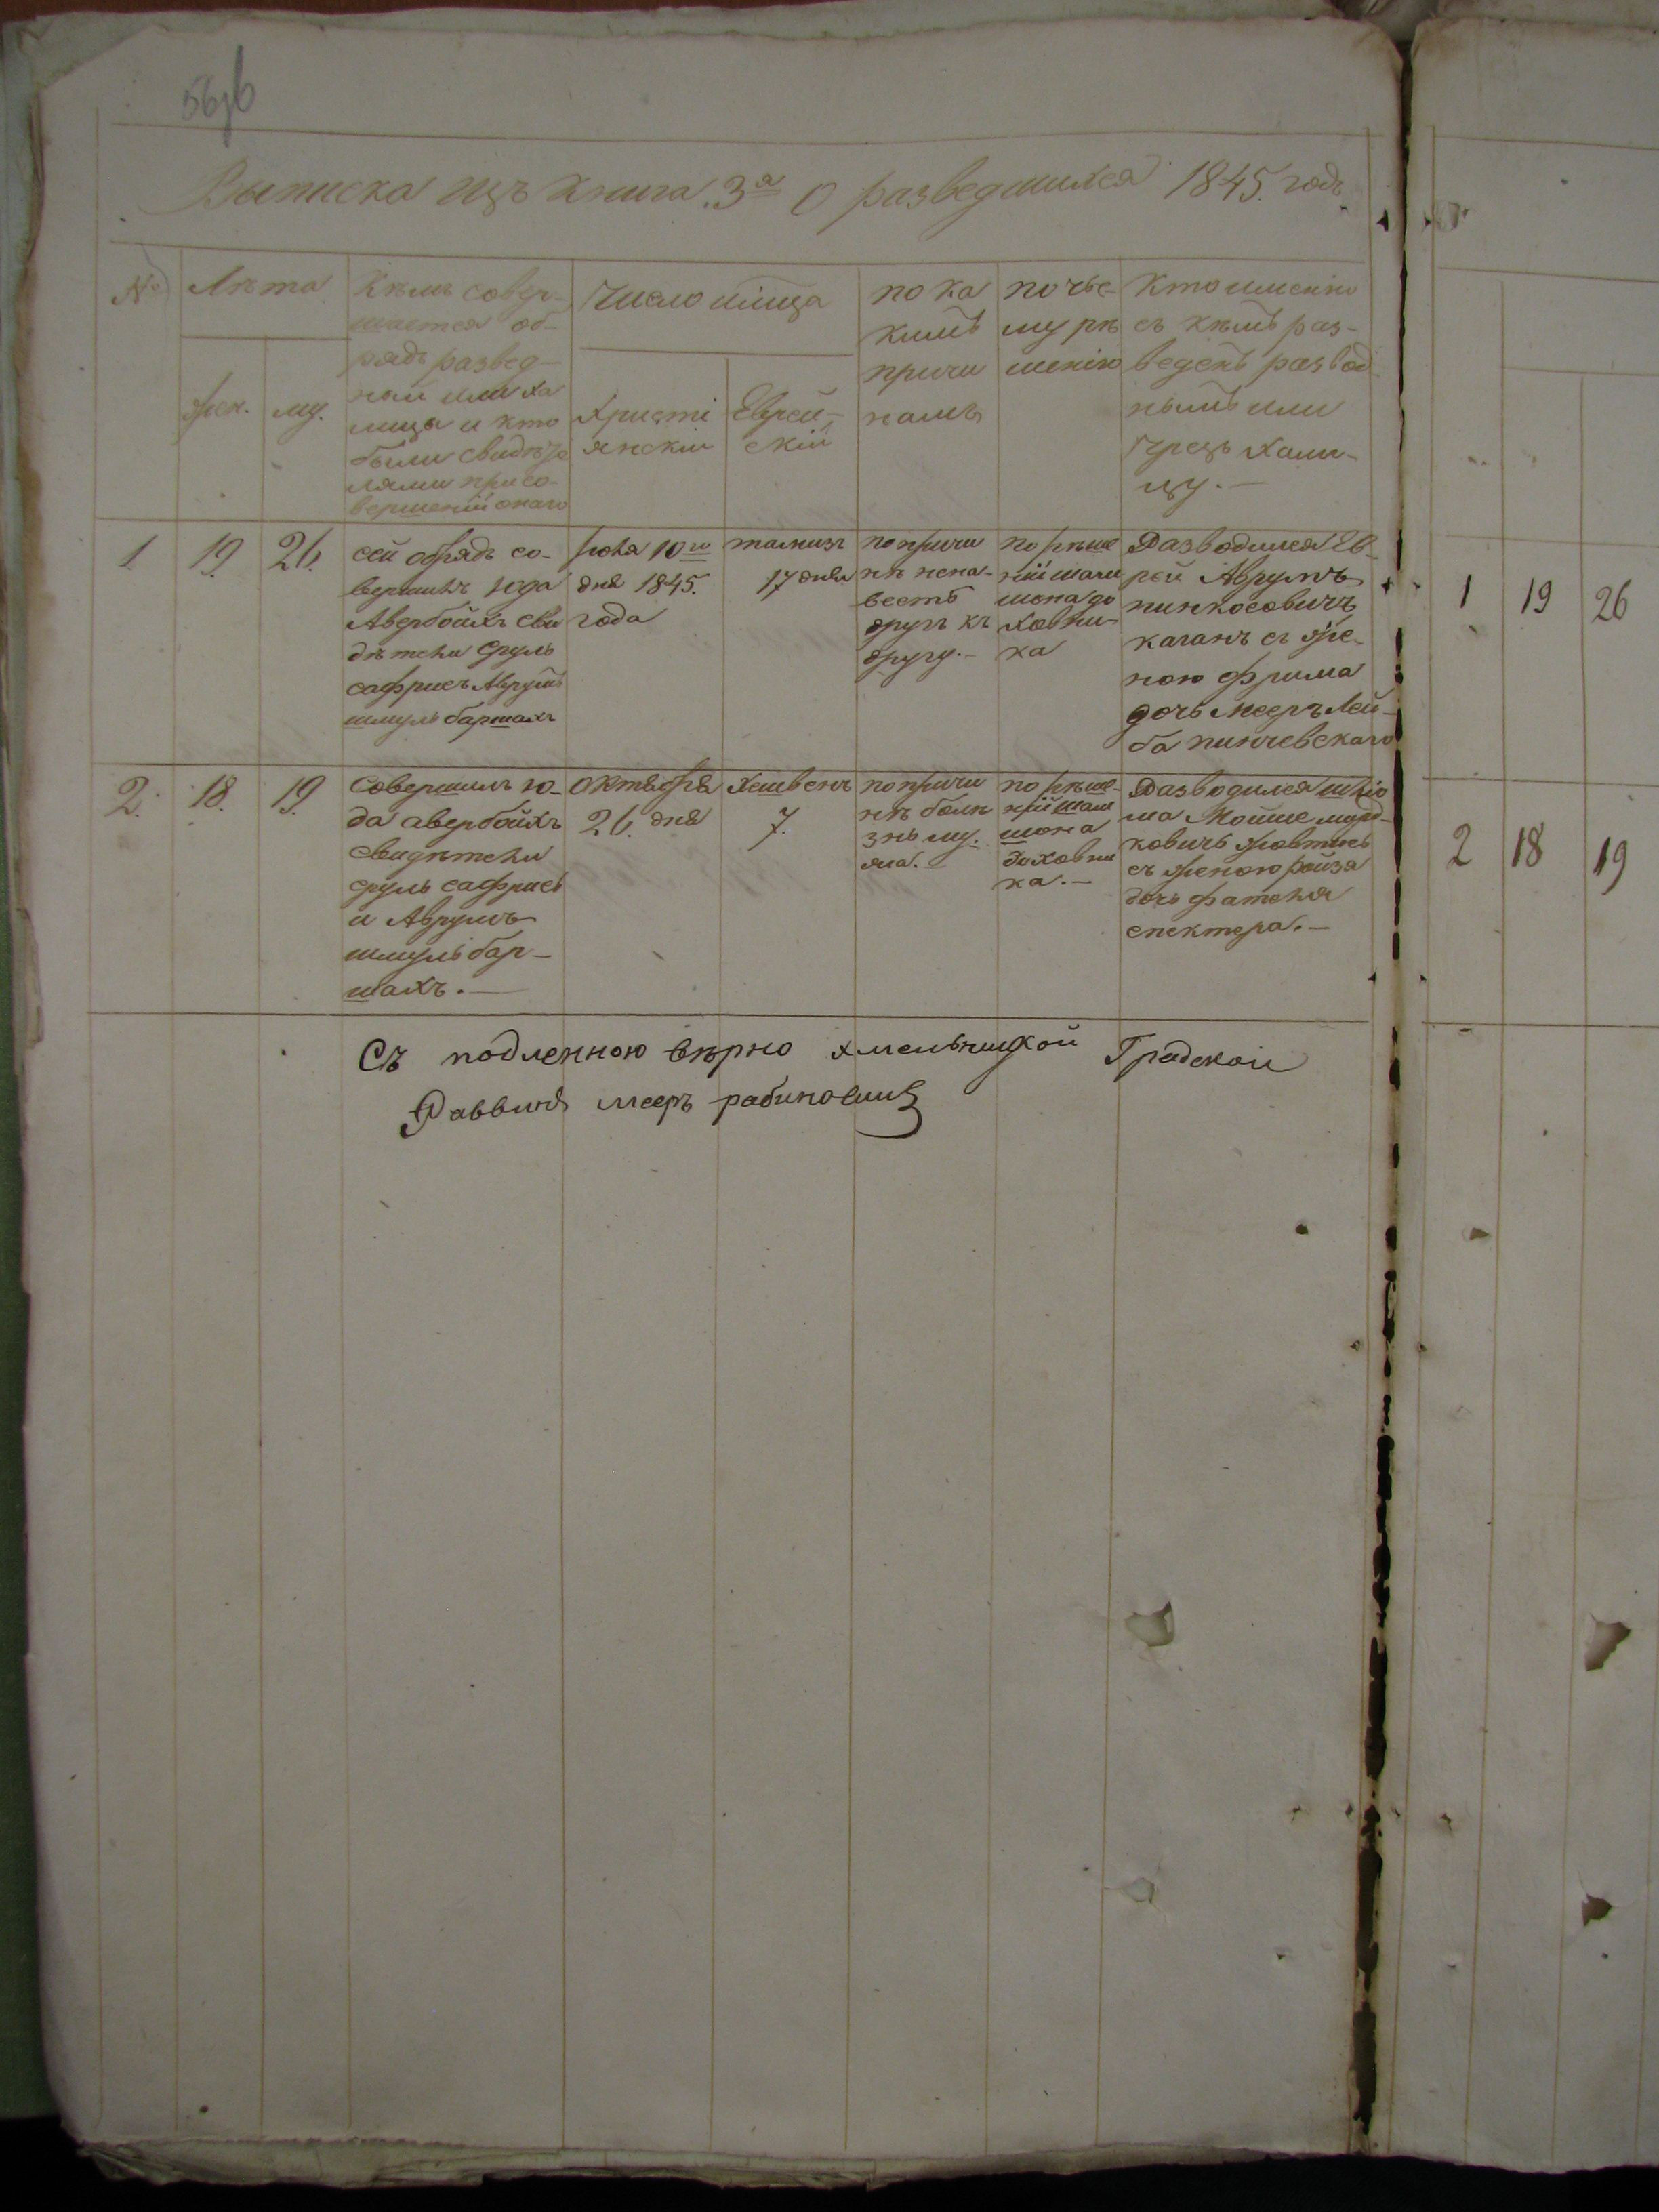 Выписка изъ книга 3я О разведшихся 1845. годъ
№
Лѣта
жен.
му.
Кѣмъ совер-
шается об-
рядъ развод-
ный или ха
лица и кто
были свидѣте
лями при со-
вершеніи онаго
Число мѣсяца
Христі
янскіи
Еврей-
скій
по ка
кимъ
причи
намъ
по чье-
му рѣ
шенію
Кто именно
съ кѣмъ раз-
веденъ развод
нымъ или
чрезъ Хали-
цу.-
1.
19.
26.
сей обрядъ со-
вершилъ юда
Авербойхъ сви
дѣтели сруль
сафрисъ Аврумъ
шмуль баршахъ
Іюля 10го
дня 1845.
года
тамизъ
17 дня
по причи
нѣ нена-
весть
другъ къ
другу.-
по рѣше
ніи шали
шона до
ховни-
ка
Разводился Ев-
рей Аврумъ
пинкосовичъ
каганъ съ же-
ною фрима
дочь мееръ Лей-
ба пинчевскаго
2.
18.
19.
Совершилъ Ю-
да авербойхъ
свидѣтели
сруль сафрисъ
и Аврумъ
шмуль бар-
шахъ.-
Октября
26. дня
Хешвенъ
7.
по причи
нѣ болѣ
знь му.
жа.
по рѣше-
ніи шали
шона
доховни
ка.-
Разводился шліо
ма Мойше мард-
ковичъ
съ женою ройза
дочь
спектера.-
Съ подленною вѣрно хмельницкой Градской
Раввинъ мееръ рабиновичъ
1
19
26
2
18
19